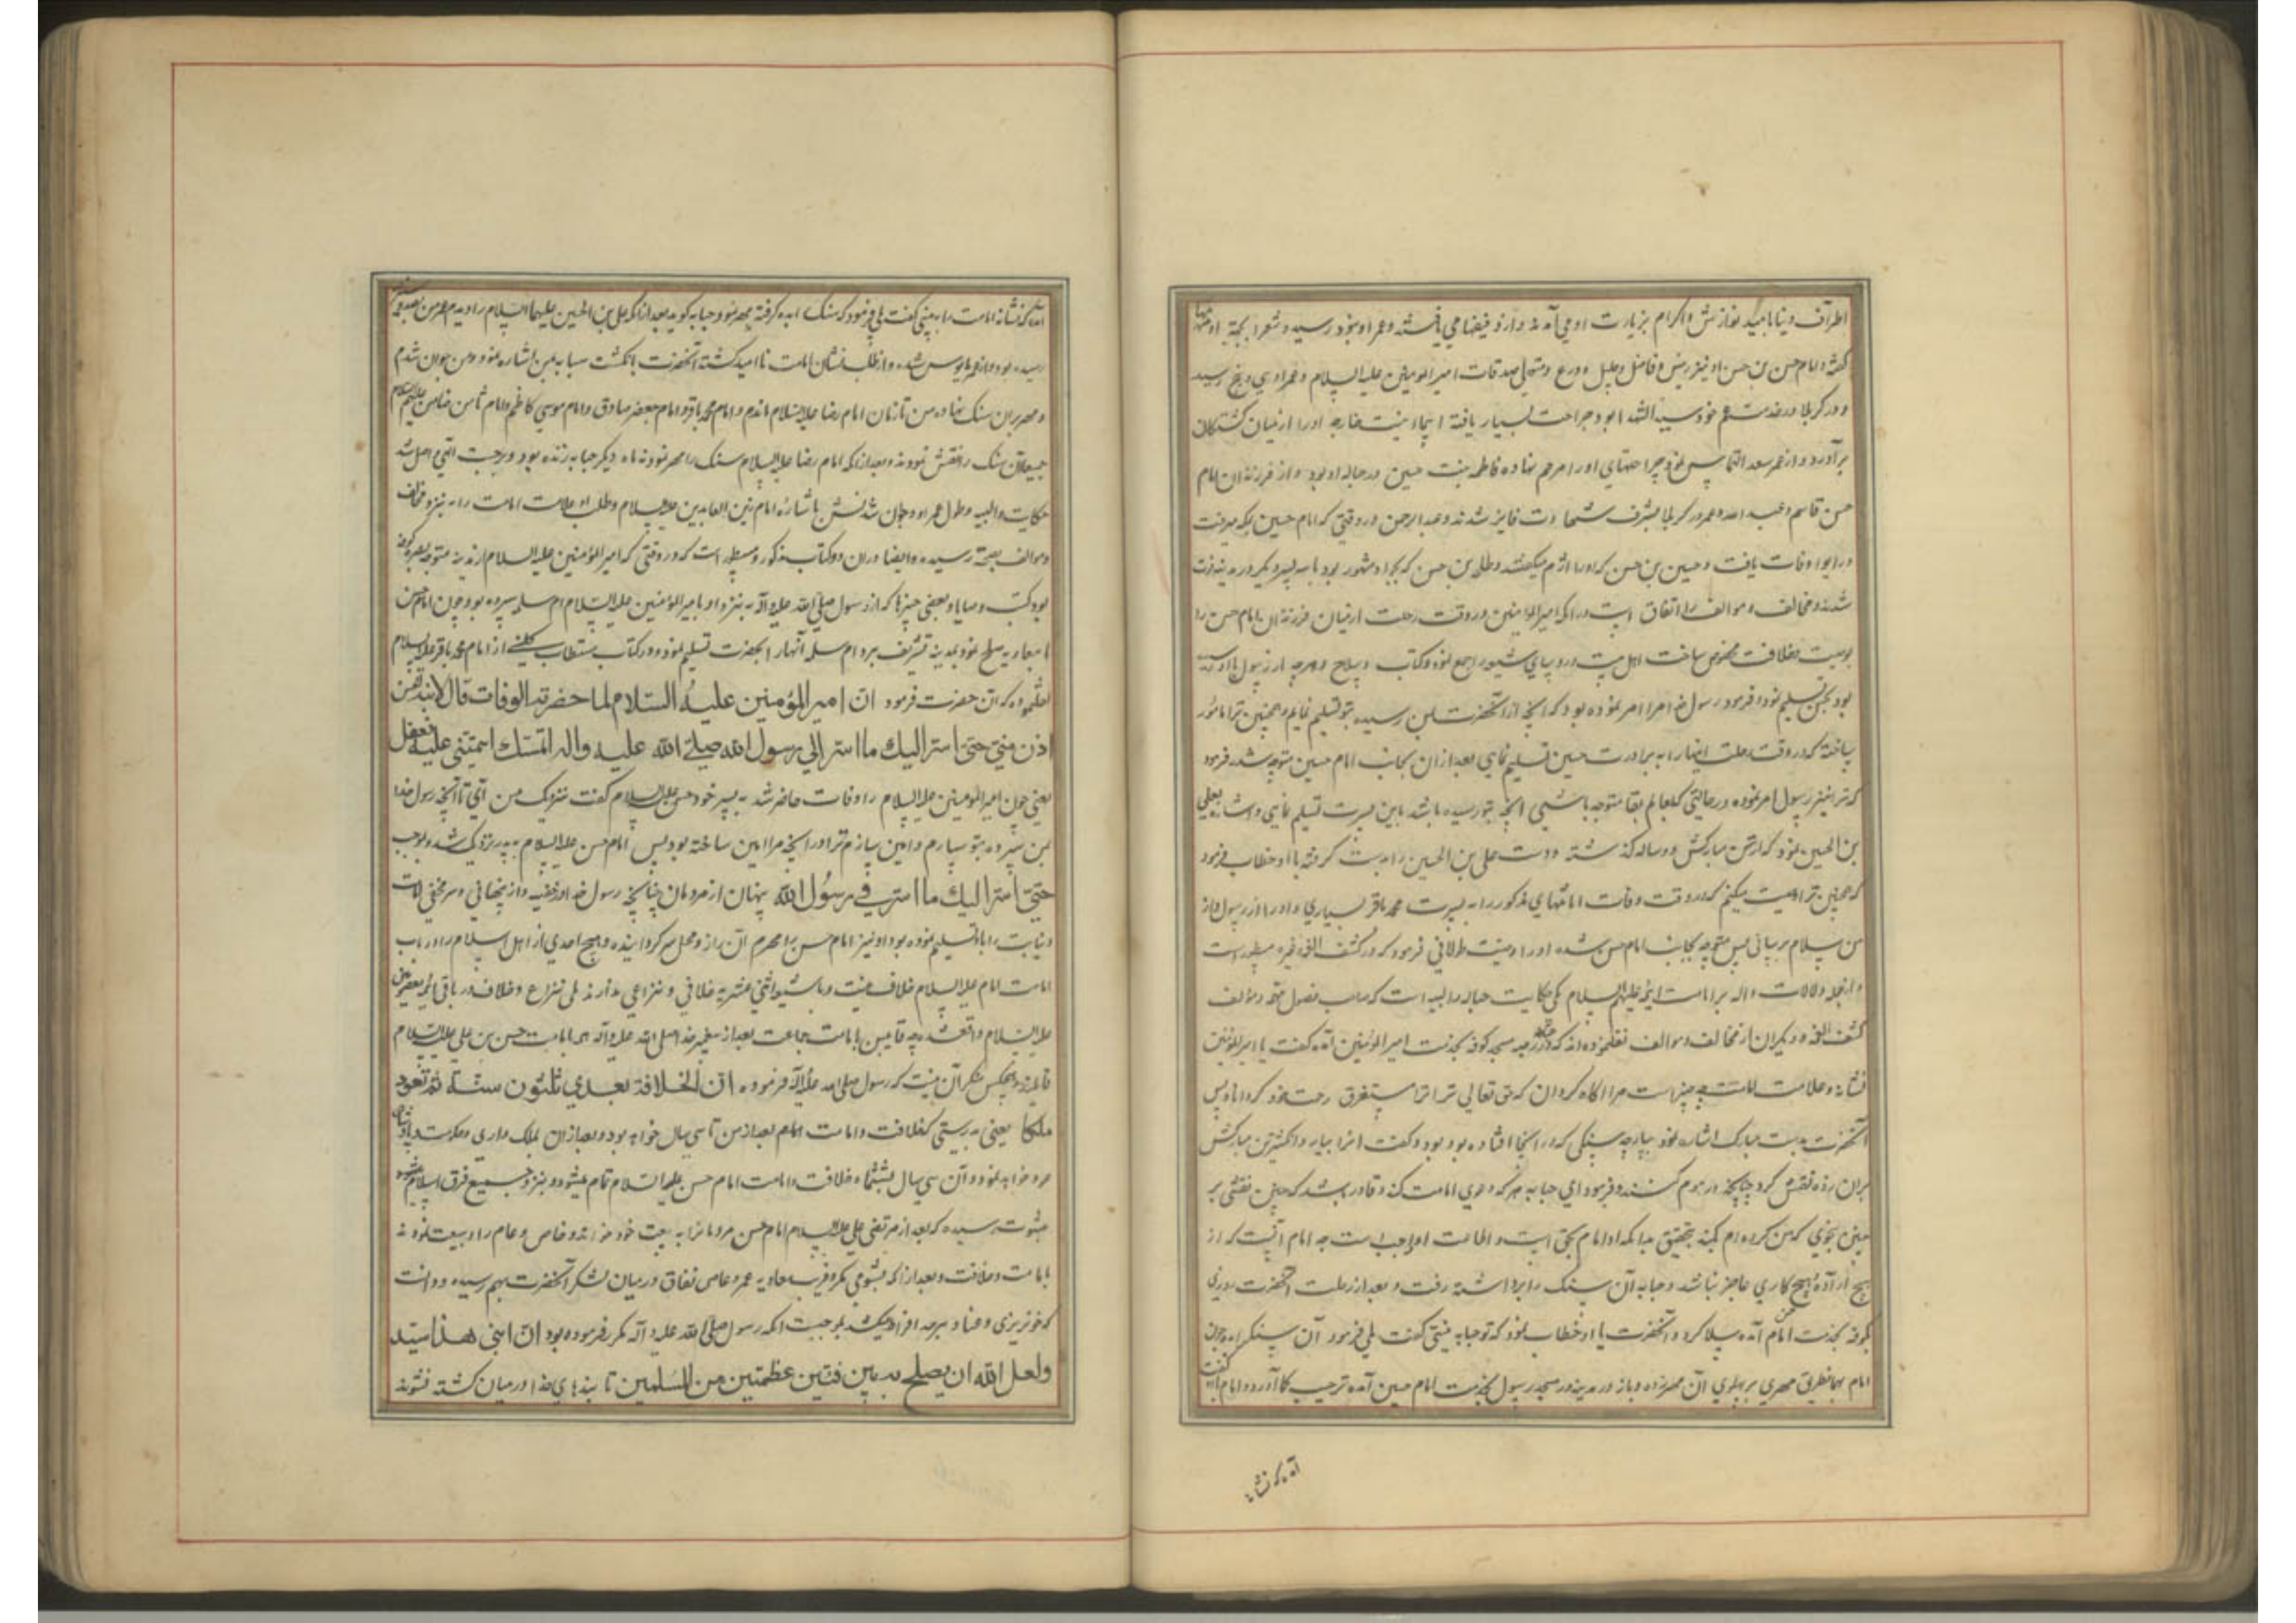 اطراف دنیا بامید نوازش و اکرام بزیارت او می آمدند و ازو فیضها می یافتند و عمر او بنود رسید و شعرا بجهة او
گفته و امام حسن بن حسن او نیز رئیس و فاضل و جلیل و ورع و متولی صدقات امیر المومنین علیه السلام و عمر او سی و پنج رسید
و در کربلا در خدمت عم خود سید الشهدا بود و جراحت بسیار یافته اسماء بنت خارجه او را از میان کشتکان
برآورد و از عمر سعد التماس نمود و جراحتهای او را مرهم نهاده فاطمه بنت حسین در حباله او بود و از فرزندان امام
حسن قاسم و عبد الله و عمر در کربلا بشرف شهادت فایز شدند و عبد الرحمن در وقتی که امام حسین بمکه میرفت
در ابوا وفات یافت و حسین بن حسن که او را اثرم میکفتند و طلحه بن حسن که بجود مشهور بود
شدند و مخالف و موالف را اتفاق است در آنکه امیر المؤمنین در وقت رحلت از میان فرزندان امام حسن را
بوصیت و خلافت مخصوص ساخت اهل بیت و روسای شیعه را جمع نموده و کتاب و سلاح و هر چه از رسول باو رسیده
بود بحسن تسلیم نمود و فرمود رسول خدا مرا امر نموده بود که آنچه از آنحضرت بمن رسیده بتو تسلیم نمایم و همچنین ترا مامور
ساخته که در وقت رحلت اینها را به برادرت حسین تسلیم نمایی بعد از آن بجانب امام حسین متوجه شده فرمود
که ترا نیز رسول امر نموده در حالتی که بعالم بقا متوجه باشی آنچه بتو رسیده باشد باین پسرت تسلیم نمایی و اشاره بعلی
بن الحسین نمود که از سن مبارکش دو سال گذشته و دست علی بن الحسین را بدست گرفته با او خطاب فرمود
که همچنین ترا وصیت میکنم که در وقت وفات امانتهای مذکور را به پسرت محمد باقر بسپاری و او را از رسول و از
من سلام برسانی پس متوجه بجانب امام حسن شده او را وصیت طولانی فرمود که در کشف الغمه و غیره مسطور است
و از جمله دلالات داله بر امامت ائمه علیهم السلام یکی حکایت حبابه والبیه است که صاحب فصول مهمه و مؤلف
کشف الغمه و دیگران از مخالف و موالف نقل نموده اند که در رحبه مسجد کوفه بخدمت امیر المؤمنین آمده گفت یا امیر المؤمنین
نشانه و علامت امامت چه چیز است مرا آگاه گردان که حق تعالی ترا مستغرق رحمت خود گرداناد پس
آنحضرت بدست مبارک اشاره نمود بپارچه سنگی که در آنجا افتاده بود و گفت آنرا بیار و انگشترین مبارکش
بران زده نقش کرد چنانچه در موم کنند و فرمود ای حبابه هر که دعوی امامت کند و قادر باشد که چنین نقشی بر
چنین بنحوی که من کرده ام بکند بتحقیق بدانکه او امام بحق است و اطاعت او واجب است چه امام آنست که از
هیچ اراده و هیچ کاری عاجز نباشد و حبابه آن سنگ را برداشته رفت و بعد از رحلت آنحضرت روزی
بکوفه بخدمت امام حسن آمده سلام کرد و آنحضرت با او خطاب نمود که تو حبابه نیستی گفت بلی فرمود آن سنگ را بده چون
امام بهمان طریق مهری بر پهلوی آن مهر زده و باز در مدینه در مسجد رسول بخدمت امام حسین آمده ترحیب کرد و امام با او گفت
آمده که نشانه
آمده که نشانه امامت را به بینی گفت بلی فرمود که سنگ را بده گرفته مهر نمود حبابه گوید بعد از آنکه علی بن الحسین علیهما السلام را دیدم عمر من بصد و
رسیده بود و از عمر مایوس شده و از طلب نشان امامت ناامید گشته آنحضرت بانگشت سبابه بمن اشاره نمود و من جوان شدم
و مهر بر آن سنگ نهاده من تا زمان امام رضا علیه السلام ماندم و امام محمد باقر و امام جعفر صادق و امام موسی کاظم و امام ثامن ضامن علیهم السلام
جمیعا آن سنگ را نقش نمودند و بعد از آنکه امام رضا علیه السلام سنگ را مهر نمود نه ماه دیگر حبابه زنده بود و برحمت الهی واصل شد
حکایت والبیه و طول عمر او و جوان شدنش باشاره امام زین العابدین علیه السلام و طلب او علامت امامت را به نزد مخالف
و موالف بصحت رسیده و ایضا در آن دو کتاب مذکور و مسطور است که در وقتی که امیر المؤمنین علیه السلام از مدینه متوجه بصره و کوفه
بود کتب و وصایا و بعضی چیزها که از رسول صلی الله علیه و آله به نزد او بود امیر المؤمنین علیه السلام بام سلمه سپرده بود و چون امام حسن
با معاویه صلح نمود و بمدینه تشریف برد ام سلمه آنها را بحضرت تسلیم نمود و در کتاب مستطاب کلینی از امام محمد باقر علیه السلام
نقل نموده که آن حضرت فرمود ان امیر المؤمنین علیه السلام لما حضرته الوفات قال لابنه الحسن
ادن منی حتی اسر الیك ما اسر الی رسول الله صلی الله علیه واله ائتمنك ما ائتمننی علیه ففعل
یعنی چون امیر المؤمنین علیه السلام را وفات حاضر شد به پسر خود حسن علیه السلام گفت نزدیک من آی تا آنچه رسول خدا
بمن سپرده بتو سپارم و امین سازم ترا در آنچه مرا امین ساخته بود پس امام حسن علیه السلام به پدر نزدیک شد و بموجب
حتی اسر الیك ما اسر فی رسول الله پنهان از مردمان چنانچه رسول خدا
و نیابت را باو تسلیم نموده بود او نیز امام حسن را محرم آن راز و محل سر گردانیده و هیچ احدی از اهل اسلام را در باب
امامت امام علیه السلام خلاف نیست و با شیعه اثنی عشریه خلافی و نزاعی ندارند بلی نزاع و خلاف در باقی ائمه
علیه السلام واقع شده چه قایلین بامامت جماعت بعد از پیغمبر خدا صلی الله علیه و آله همه بامامت حسن بن علی علیه السلام
قایلند و هیچکس منکر آن نیست که رسول صلی الله علیه و آله فرموده ان الخلافة بعدی ثلثون سنة ثم تعود
ملكا یعنی بدرستی که خلافت و امامت امام بعد از من تا سی سال خواهد بود و بعد از آن بملک داری و حکومت و پادشاهی
عود خواهد نمود و آن سی سال بششماه خلافت و امامت امام حسن علیه السلام تمام میشود و بنزد جمیع فرق اسلام
بثبوت رسیده که بعد از مرتضی علی علیه السلام امام حسن مردمانرا به بیعت خود خواند و خاص و عام با او بیعت نمودند
بامامت و خلافت و بعد از آنکه بشومی مکر و فریب معاویه و عمرو عاص نفاق در میان لشکر آنحضرت بهم رسیده و دانست
که خونریزی و فساد بسرحد افراط میکشد بموجب آنکه رسول صلی الله علیه و آله مکرر فرموده بود ان ابنی هذا سید
ولعل الله ان یصلح به بین فئتین عظمتین من المسلمین تا بندهای خدا در میان کشته نشوند